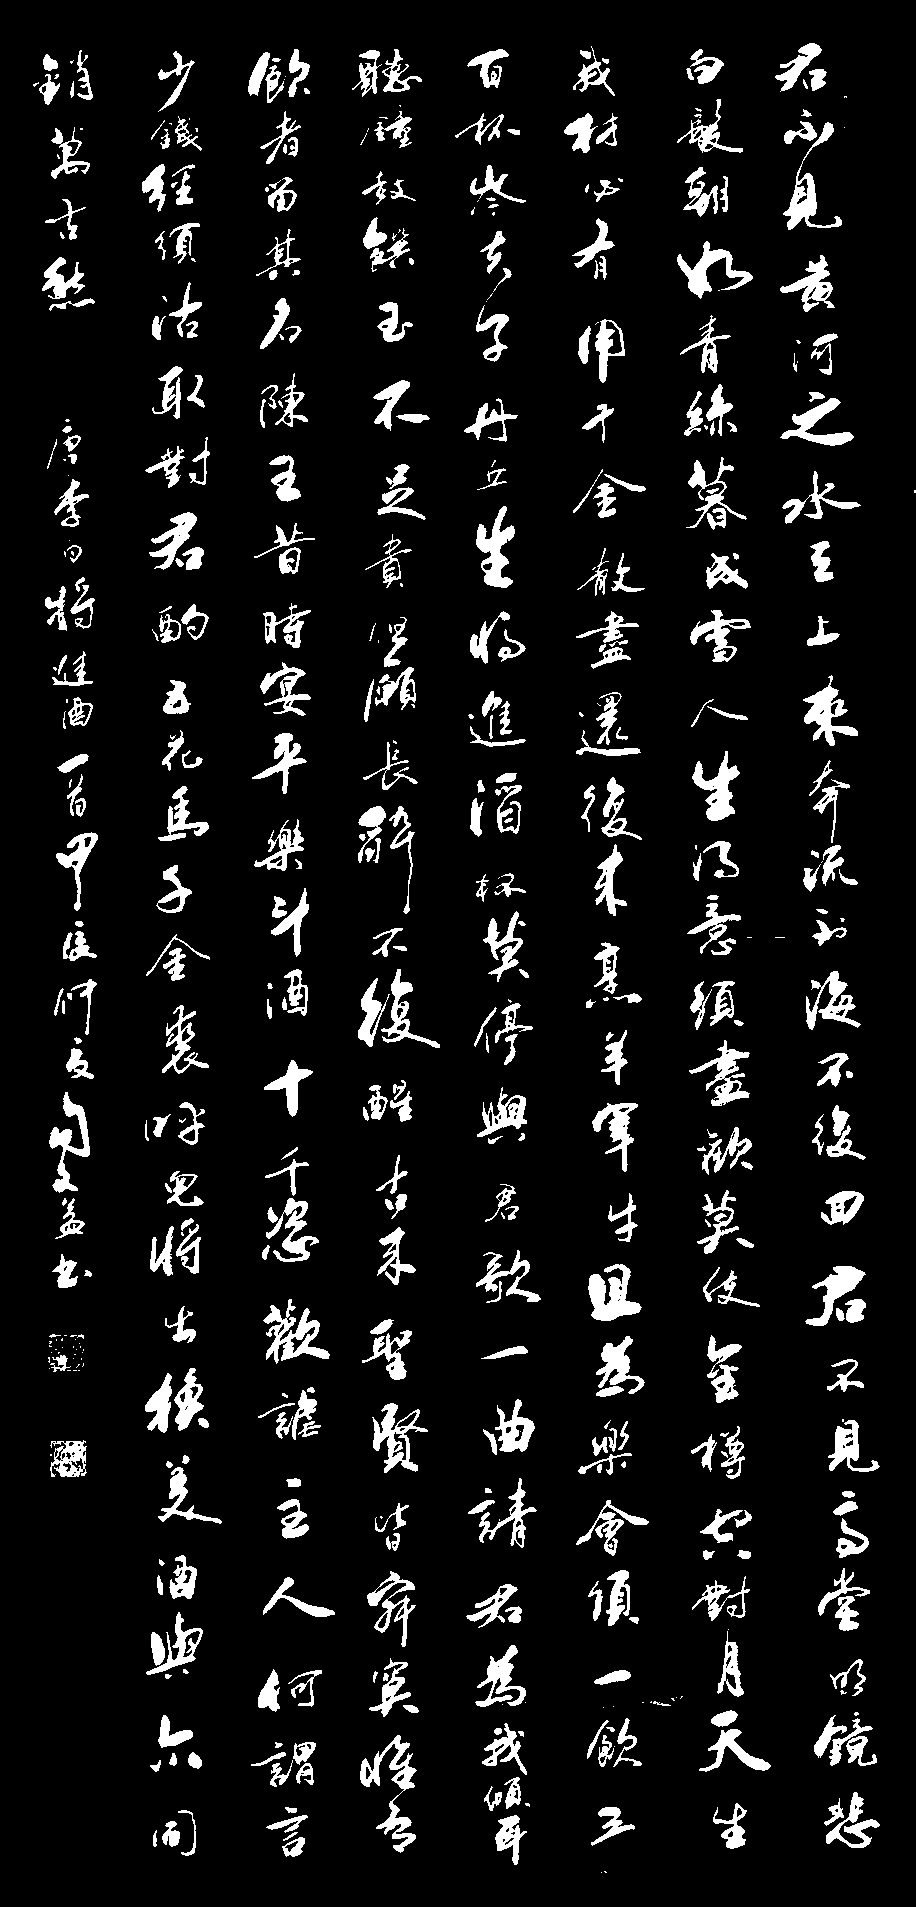 君不見黃河之水天上來奔流到海不復回君不見高堂明鏡悲
白髮朝如青絲暮成雪人生得意須盡歡莫使金樽空對月天生
我材必有用千金散盡還復來烹羊宰牛且為樂會須一飲三
百杯岑夫子丹丘生將進酒杯莫停與君歌一曲請君為我傾耳
聽鐘鼓饌玉不足貴但願長醉不復醒古來聖賢皆寂寞惟有
飲者留其名陳王昔時宴平樂斗酒十千恣歡謔主人何謂言
少錢經須沽取對君酌五花馬千金裘呼兒將出換美酒與尔同
銷萬古愁 唐李白將進酒一首甲辰仲夏文益书